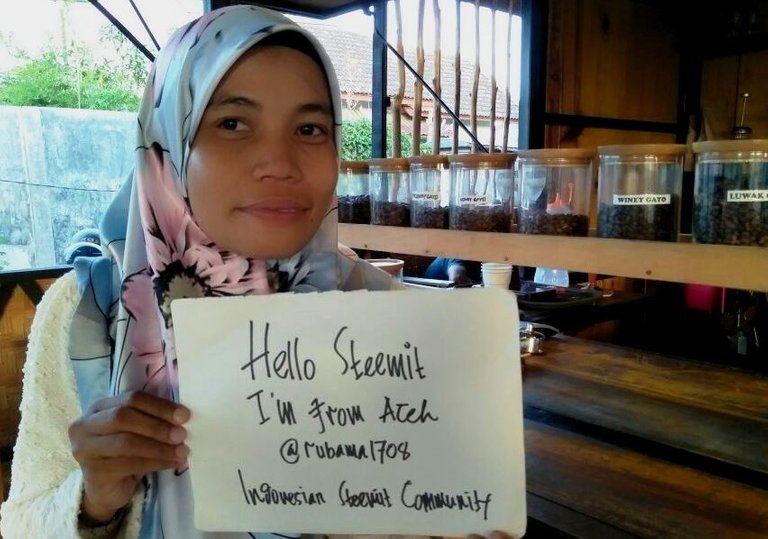 Hello Steemit
I'm from Aceh
@rubama1708
Indonesian Steemit Community
WINEY GAYO
LUWAK